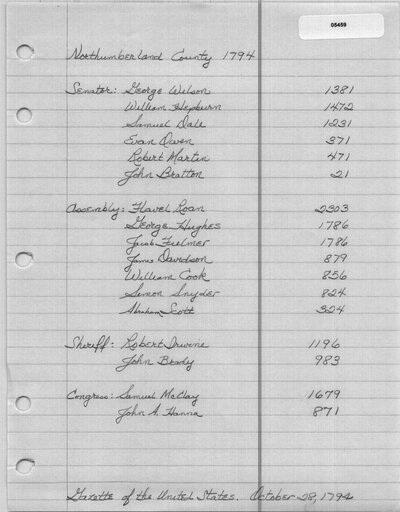 05459
Northumberland County 1794
Senator: George Wilson 1381
William Hepburn 1472
Samuel Dale 1231
Evan Owen 371
Robert Martin 471
John Bratton 21
Assembly: Flavel Roan 2303
George Hughes 1786
Jacob Fulmer 1786
James Davidson 879
William Cook 856
Simon Snyder 824
Abraham Scott 324
Sheriff: Robert Irwine 1196
John Brady 983
Congress: Samuel McClay 1679
John A. Hanna 871
Gazette of the United States. October 28, 1794